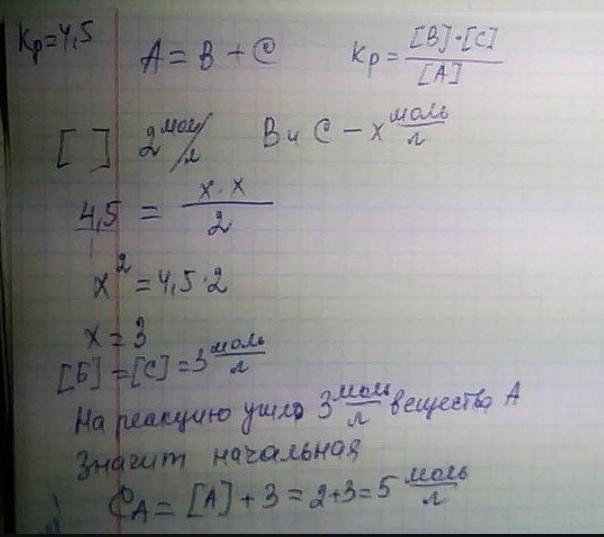 Кр=4,5
A = B + C Кр = [B]·[C] / [A]
[ ] 2 моль/л В и С – х моль/л
4,5 = х · х / 2
х² = 4,5·2
х = 3
[Б] = [С] = 3 моль/л
На реакцию ушло 3 моль/л вещества А
Значит начальная
CА = [А] + 3 = 2+3 = 5 моль/л